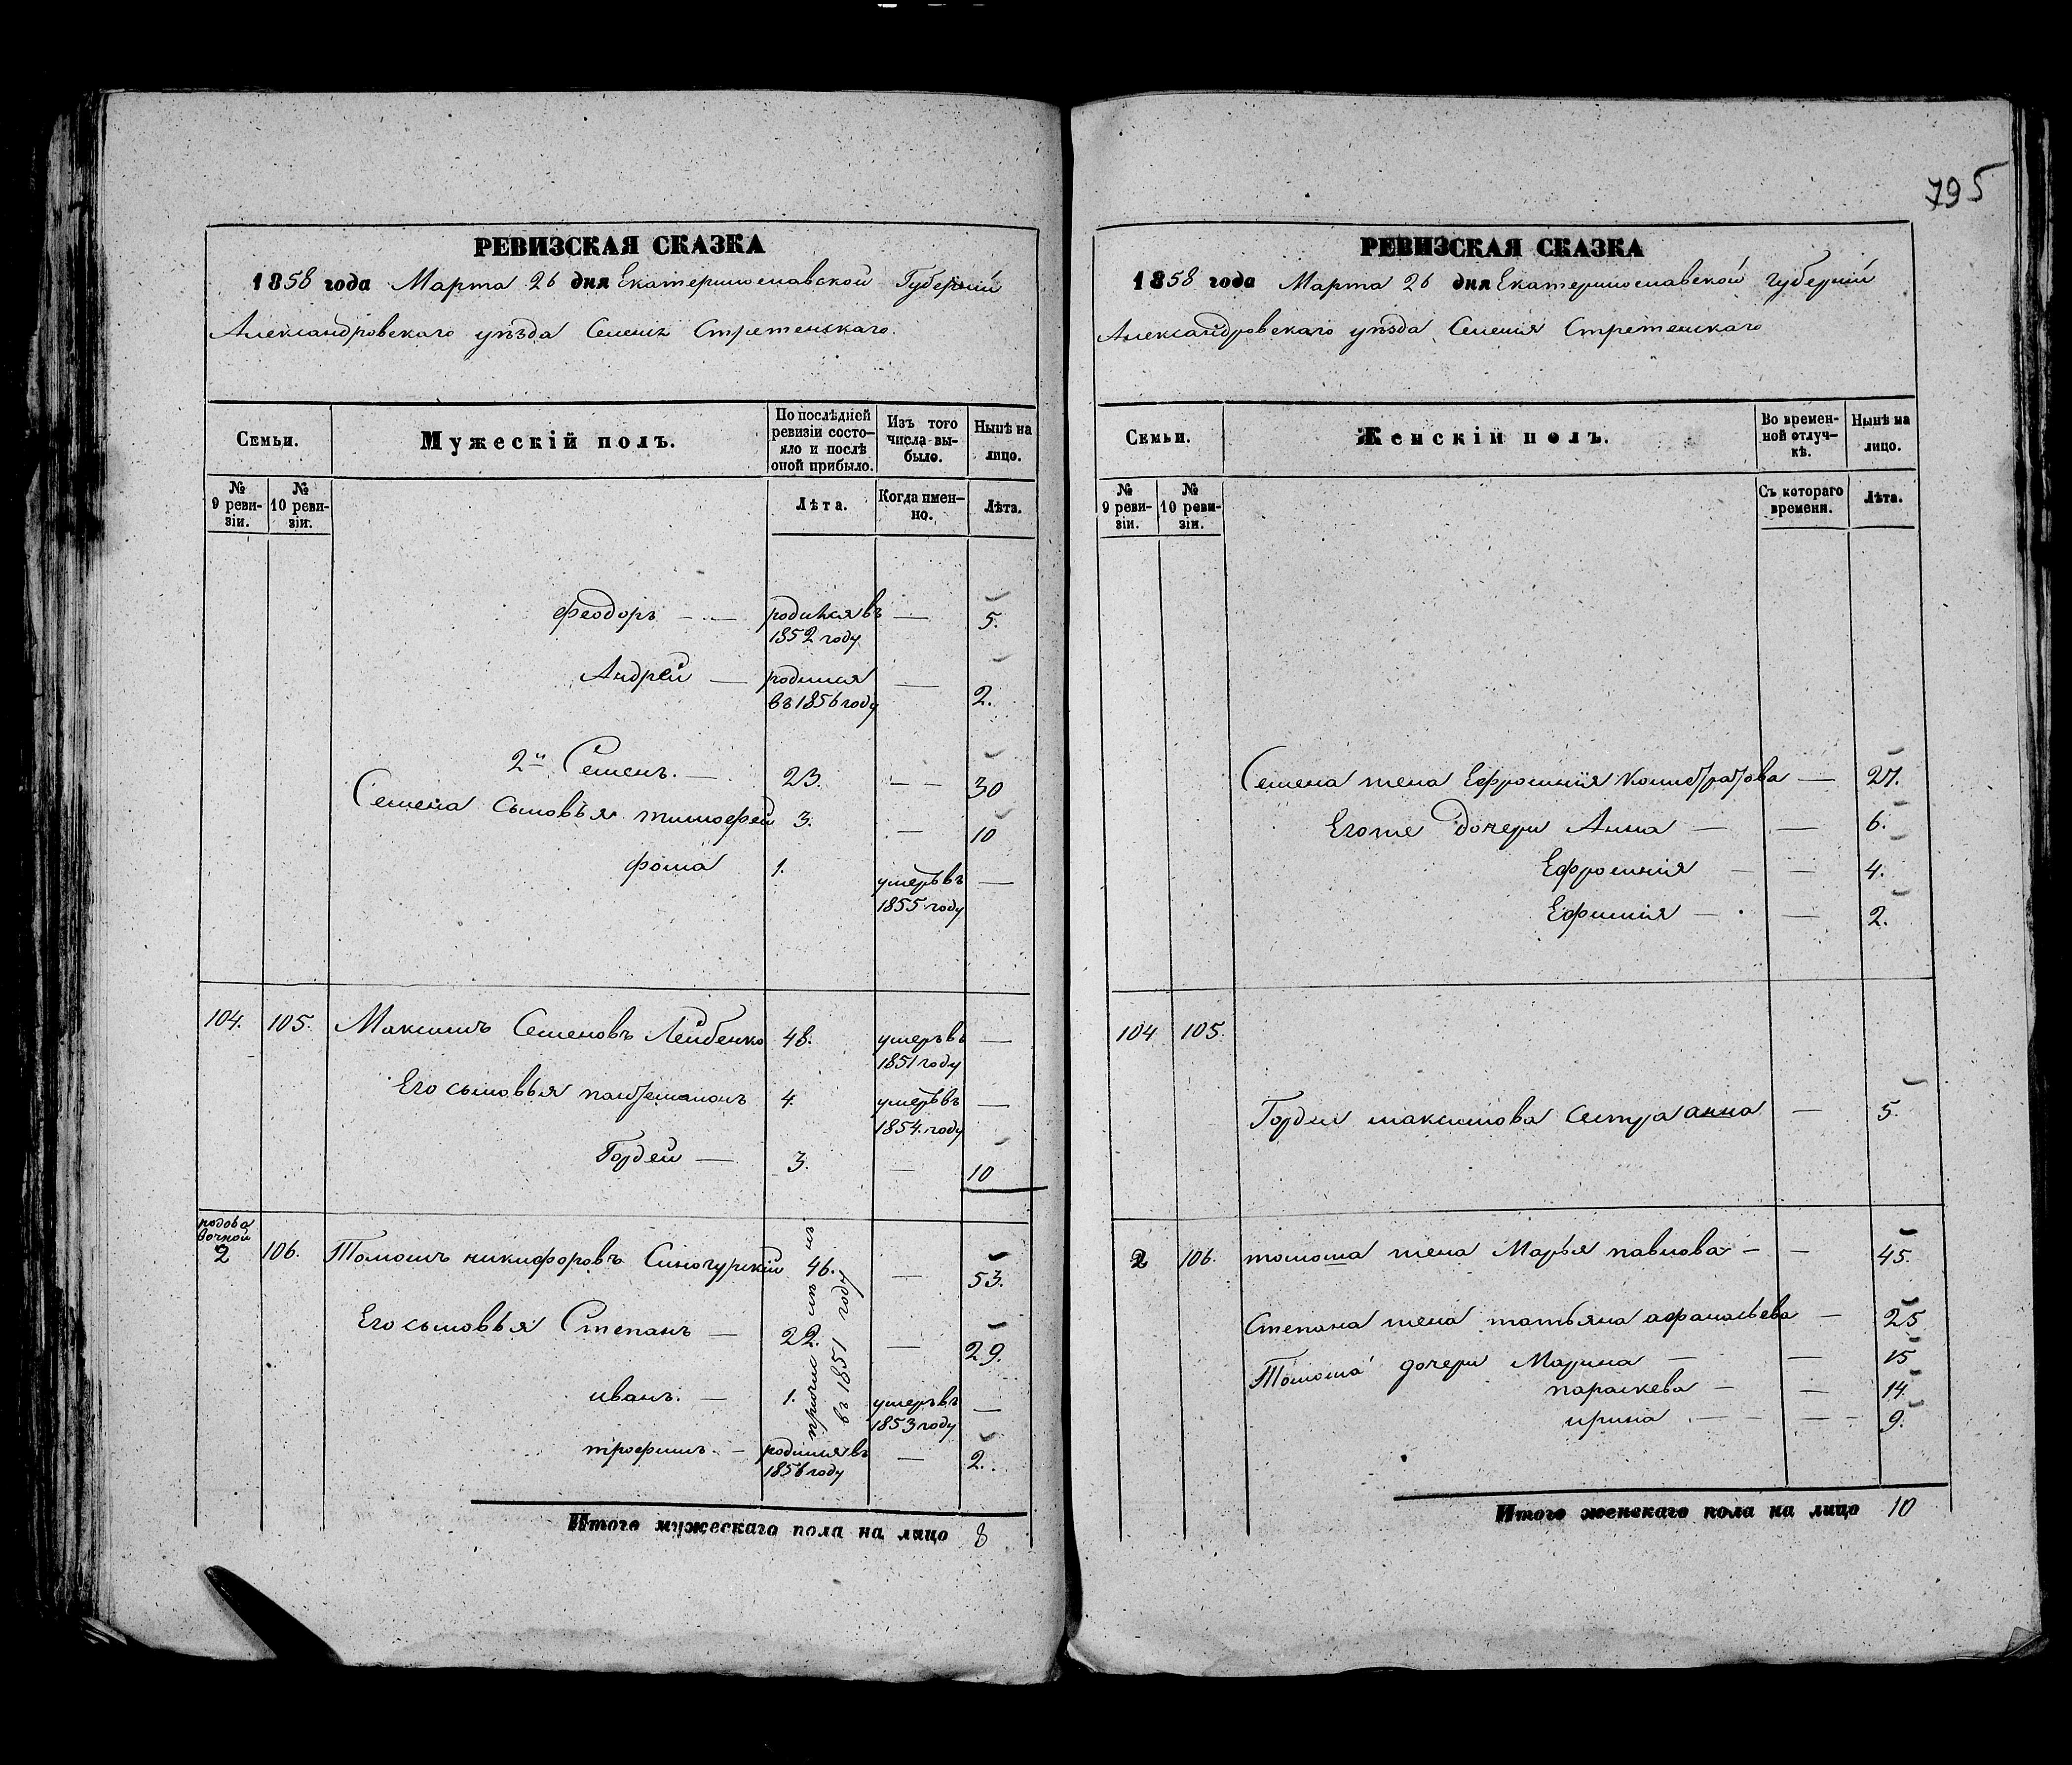 795
РЕВИЗСКАЯ СКАЗКА
1858 года Марта 26 дня Екатеринославской Губерніи
Александровскаго уѣзда Селенія Стретенскаго.
Семьи.
Мужескій полъ.
По послѣдней ревизіи состояло и послѣ оной прибыло.
Изъ того числа выбыло.
Нынѣ на лицо.
№ 9 ревизіи.
№ 10 ревизіи.
Лѣта.
Когда именно.
Лѣта.
Феодоръ — — родился въ — 5.
1852 году
Андрей — родился — 2.
въ 1856 году
2й Семенъ. — 23. — — 30
Семена сыновья тимофей 3. — 10
фома 1. умеръ въ —
1855 году
104. 105. Максимъ Семеновъ Лейбенко 48. умеръ въ —
1851 году
Его сыновья пантелимонъ 4. умеръ въ —
1854. году
Гордей — 3. — 10
2 106. Томошъ никифоровъ Синогурскій 46. — 53.
Его сыновья Степанъ — 22. — 29.
въ 1851 году
иванъ. — 1. умеръ въ —
1853 году
трофимъ. — родился въ — 2.
1856 году
Итого мужескаго пола на лицо 8
РЕВИЗСКАЯ СКАЗКА
1858 года Марта 26 дня Екатеринославской Губерніи
Александровскаго уѣзда Селенія Стретенскаго
Семьи.
Женскій полъ.
Во временной отлучкѣ.
Нынѣ на лицо.
№ 9 ревизіи.
№ 10 ревизіи.
Съ котораго времени.
Лѣта.
Семена жена Ефросинія — 27.
Егоже дочери Анна — — 6.
Ефросинія — — 4.
Ефимія — — 2.
104 105.
Гордея максимова сестра анна — 5.
2 106. томоша жена Марья павлова — — 45.
Степана жена татьяна афанасьева — 25
Томоша дочери Марина — — 15
параскева — — 14
ирина — — — — 9.
Итого женскаго пола на лицо 10